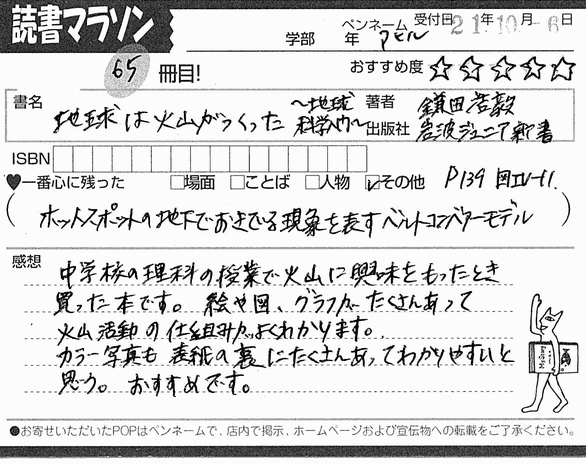 読書マラソン
学部 年 ペンネーム アヒル 受付日 21年10月-6日
65 冊目!
おすすめ度 ☆☆☆☆☆
書名 地球は火山がつくった ~地球科学入門~
著者 鎌田浩毅
出版社 岩波ジュニア新書
ISBN
♥一番心に残った □場面 □ことば □人物 ☑その他 P139 図Ⅳ-11.
(ホットスポットの地下でおきている現象を表すベルトコンベアーモデル)
感想
中学校の理科の授業で火山に興味をもったとき
買った本です。絵や図、グラフがたくさんあって
火山活動の仕組みがよくわかります。
カラー写真も表紙の裏にたくさんあってわかりやすいと
思う。おすすめです。
●お寄せいただいたPOPはペンネームで、店内で掲示、ホームページおよび宣伝物への転載をご了承ください。